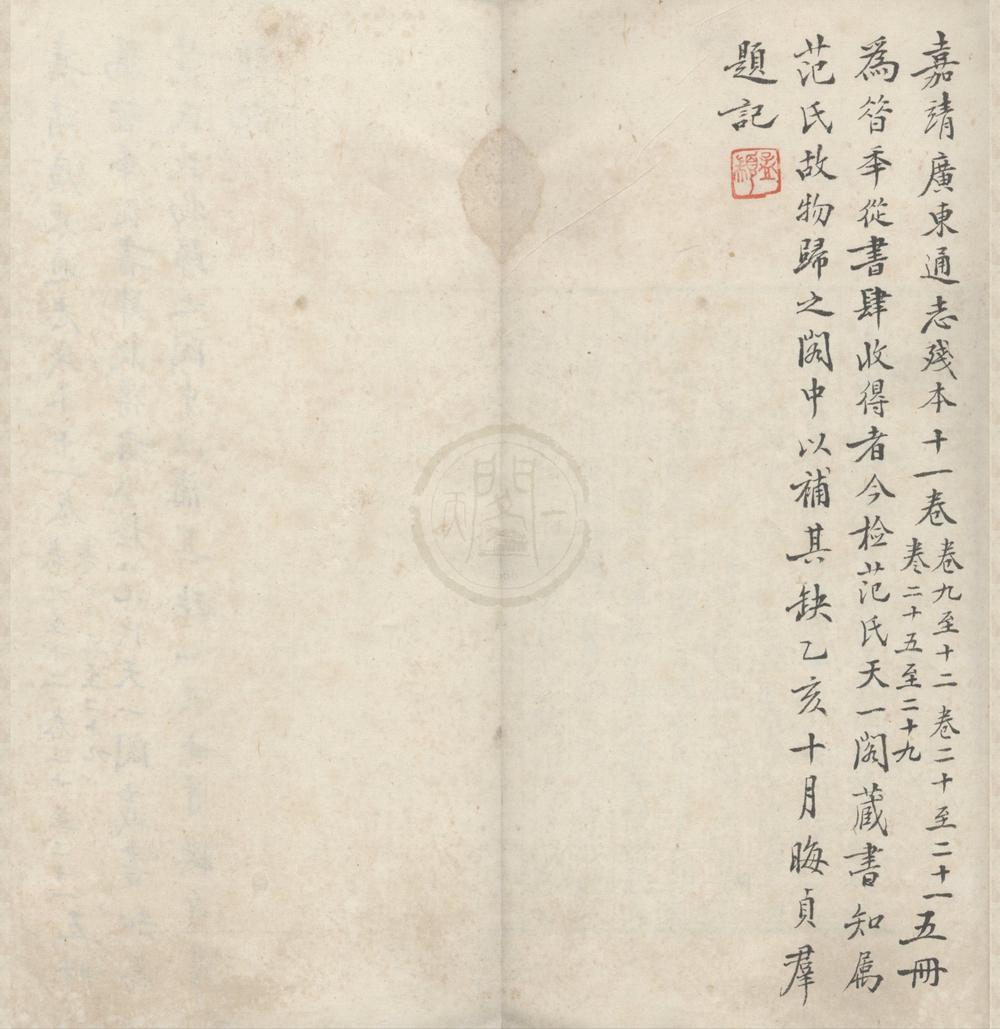 嘉靖廣東通志殘本十一卷卷九至十二卷二十至二十一卷二十五至二十九五冊
為昝年從書肆收得者今檢范氏天一閣藏書知屬
范氏故物歸之閣中以補其缺乙亥十月晦貞羣
題記
孟顈
天一閣